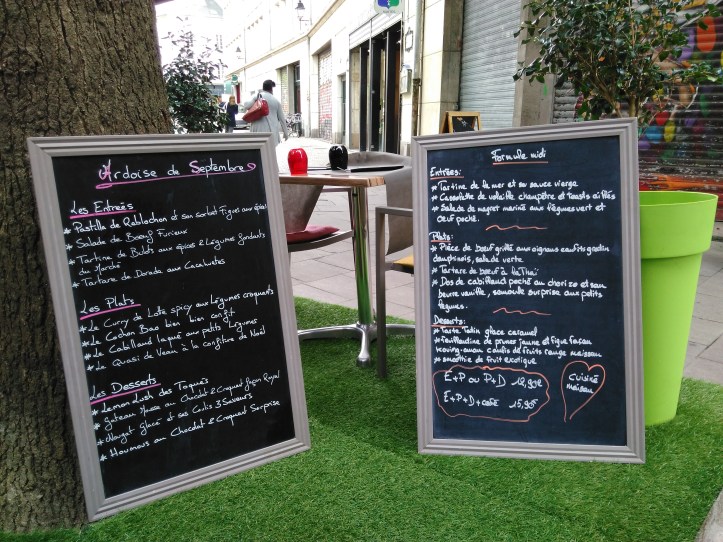 Ardoise de Septembre
Les Entrées
* Pastilla de Reblochon et son sorbet Figues aux épices
* Salade de Boeuf Furieux
* Tartine de Bulots aux épices & Légumes fondants
du Marché
* Tartare de Dorade aux Cacahuètes
Les Plats
* Le Curry de Lotte spicy aux Légumes croquants
* Le Cochon Bao bien bien confit
* Le Cabillaud laqué aux petits Légumes
* Le Quasi de Veau à la confiture de Noël
Les Desserts
* Lemon Lush des Toqués
* Gateau Mousse au Chocolat & Croquant façon Royal
* Nougat Glacé et ses Coulis 3 Saveurs
* Houmous au Chocolat & Croquant Surprise
Formule midi
Entrées:
* Tartine de la mer et sa sauce vierge
* Cassolette de volaille champêtre et Toasts aillés
* Salade de magret mariné aux légumes vert et
oeuf poché.
Plats:
* Pièce de boeuf grillé aux oignons confits gratin
dauphinois, salade verte
* Tartare de boeuf à la Thaï
* Dos de cabillaud poché au chorizo et son
beurre vanille, samoule surprise aux petits
légumes.
Desserts:
* Tarte Tatin glace caramel
* feuillantine de prunes jaune et figue façon
coulis de fruits rouge maison
* smoothie de fruit exotique
E+P ou P+D 12,90€
E+P+D+café 15,90€
Cuisine
maison